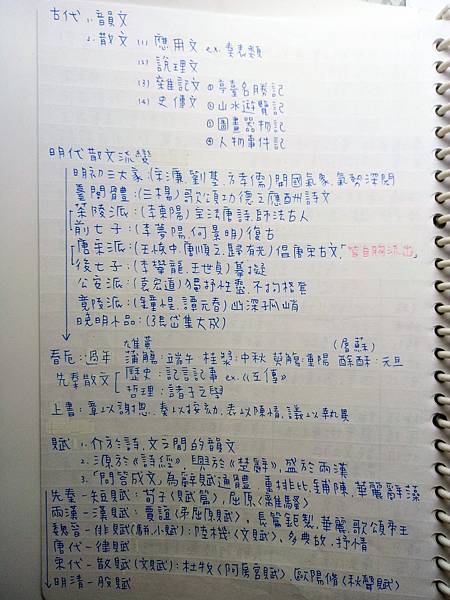 古代 1. 韻文
2. 散文 (1) 應用文 ex. 奏表類
(2) 說理文
(3) 雜記文 ①亭臺名勝記
(4) 史傳文 ②山水遊覽記
③圖畫器物記
④人物事件記
明代散文流變
明初三大家:(宋濂,劉基,方孝儒)開國氣象,氣勢深閎
臺閣體:(三楊)歌頌功德之應酬詩文
茶陵派:(李東陽)宗法唐詩,師法古人
前七子:(李夢陽,何景明)復古
唐宋派:(王慎中,唐順之,歸有光)倡唐宋古文,「皆自胸流出」
後七子:(李攀龍,王世貞)摹擬
公安派:(袁宏道)獨抒性靈,不拘格套
竟陵派:(鍾惺,譚元春)幽深孤峭
晚明小品:(張岱集大成)
雄黃 (屠蘇)
春卮:過年 蒲觴:端午 桂漿:中秋 萸觴:重陽 酴酥:元旦
先秦散文 歷史:記言記事 ex.《左傳》
哲理:諸子之學
上書:章以謝恩,奏以按劾,表以陳情,議以執異
賦 1. 介於詩、文之間的韻文
2. 源於《詩經》,興於《楚辭》,盛於兩漢
3.「問答成文」為辭賦通體,重排比、鋪陳,華麗辭藻
先秦-短賦:荀子〈賦篇〉,屈原〈離騷〉
兩漢-漢賦:賈誼〈弔屈原賦〉,長篇鉅製,華麗,歌頌帝王
魏晉-俳賦(駢,小賦):陸機〈文賦〉,多典故,抒情
唐代-律賦
宋代-散賦(文賦):杜牧〈阿房宮賦〉,歐陽脩〈秋聲賦〉
明清-股賦